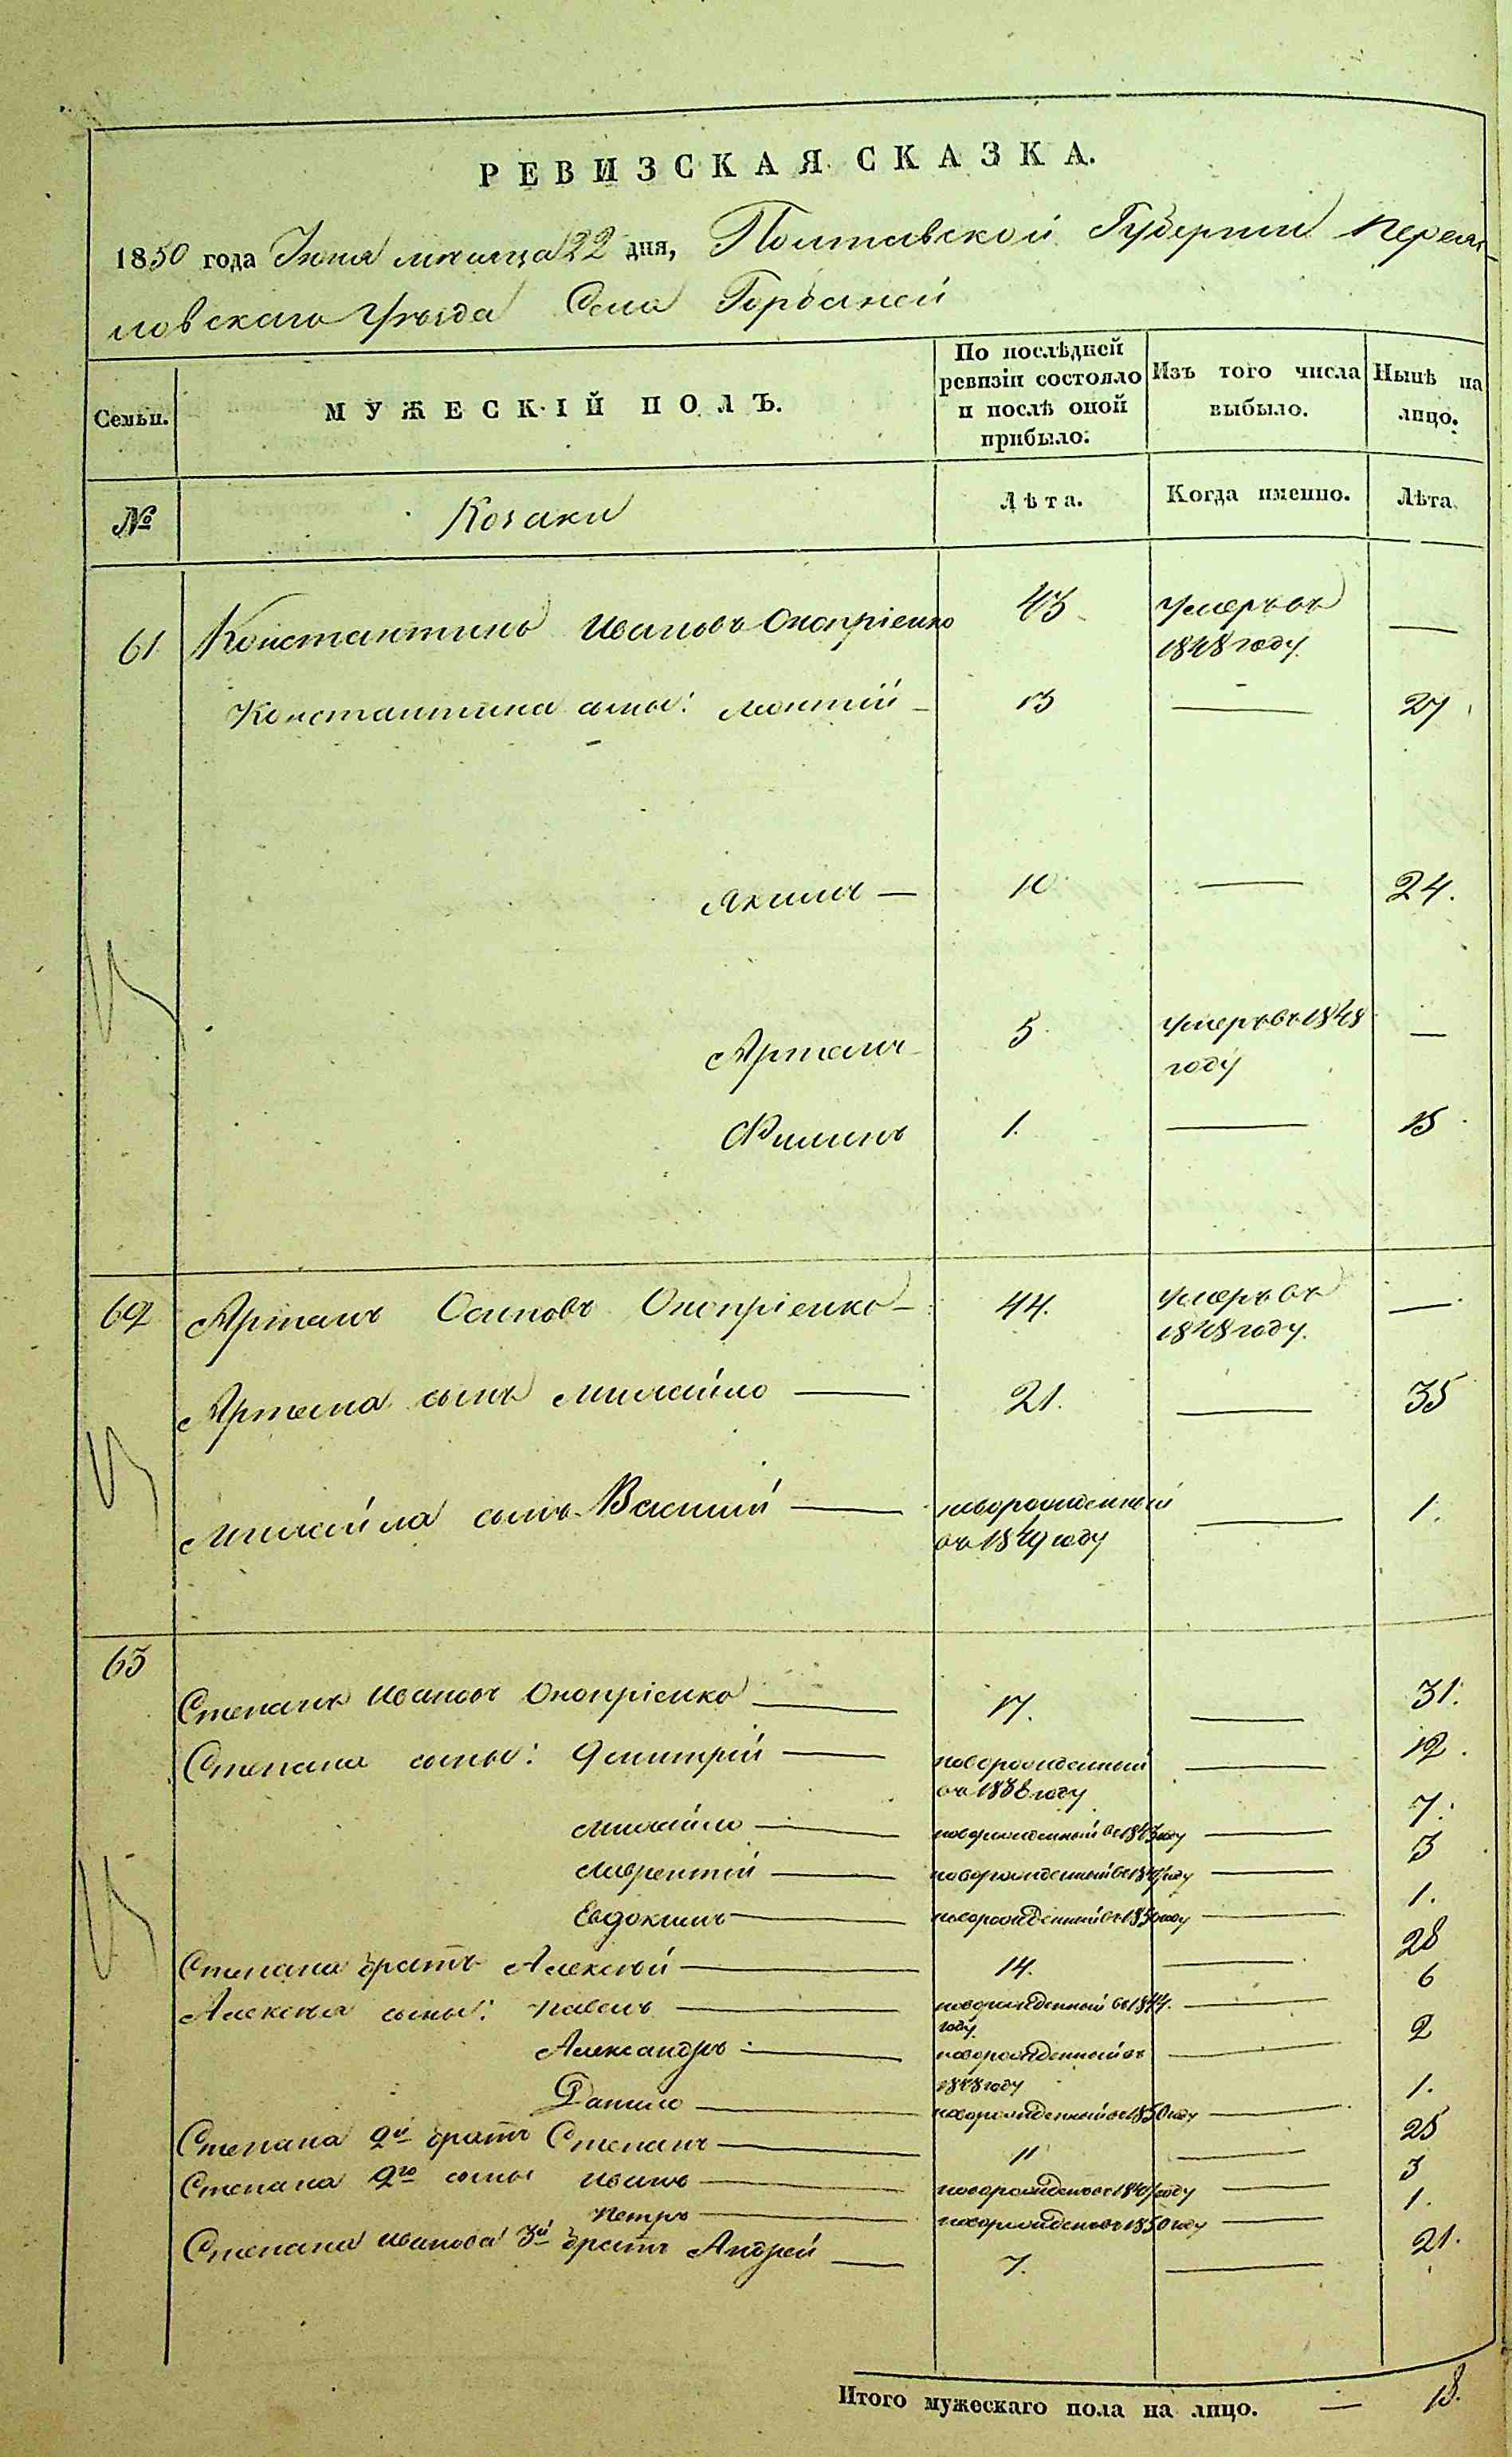 РЕВИЗСКАЯ СКАЗКА.
1850 года Июня месяца 22 дня, Полтавской Губернии Переяс-
ловскаго Уезда Села Горбаней
Семьи.
МУЖЕСКІЙ ПОЛЪ.
По послѣдней ревизіи состояло и послѣ оной прибыло.
Изъ того числа выбыло.
Нынѣ на лицо.
№
Козаки
Лѣта.
Когда именно.
Лѣта.
61 Константинъ Ивановъ Оноприенко 43 Умеръ въ 1848 году —
Константина сыны: Леонтий 13 — 27
Якимъ — 10 — 24.
Артемъ 5 Умеръ въ 1848 году —
Филипъ 1. — 15
62 Артемъ Осиповъ Оноприенко — 44. Умеръ въ 1848 году. —
Артема сынъ Михайло — 21. — 35
Михайла сынъ Василий — новорожденный въ 1849 году — 1.
63
Степанъ Ивановъ Оноприенко — 17. — 31.
Степана сыны: Дмитрий — новорожденный въ 1838 году — 12.
Михайло — новорожденный въ 1843 году — 7.
Лаврентий — новорожденный въ 1847 году — 3
Евдокимъ — новорожденный въ 1850 году — 1.
Степана братъ Алексей — 14. — 28
Алексея сыны: Павелъ — новорожденный въ 1844. году — 6
Александръ — новорожденный въ 1848 году — 2
Данило — новорожденный въ 1850 году — 1.
Степана 2й братъ Степанъ — 11 — 25
Степана 2го сыны Иванъ — новорожденъ въ 1847 году — 3
Петръ — новорожденъ въ 1850 году — 1.
Степана Иванова 3й братъ Андрей — 7. — 21.
Итого мужескаго пола на лицо. — 18.